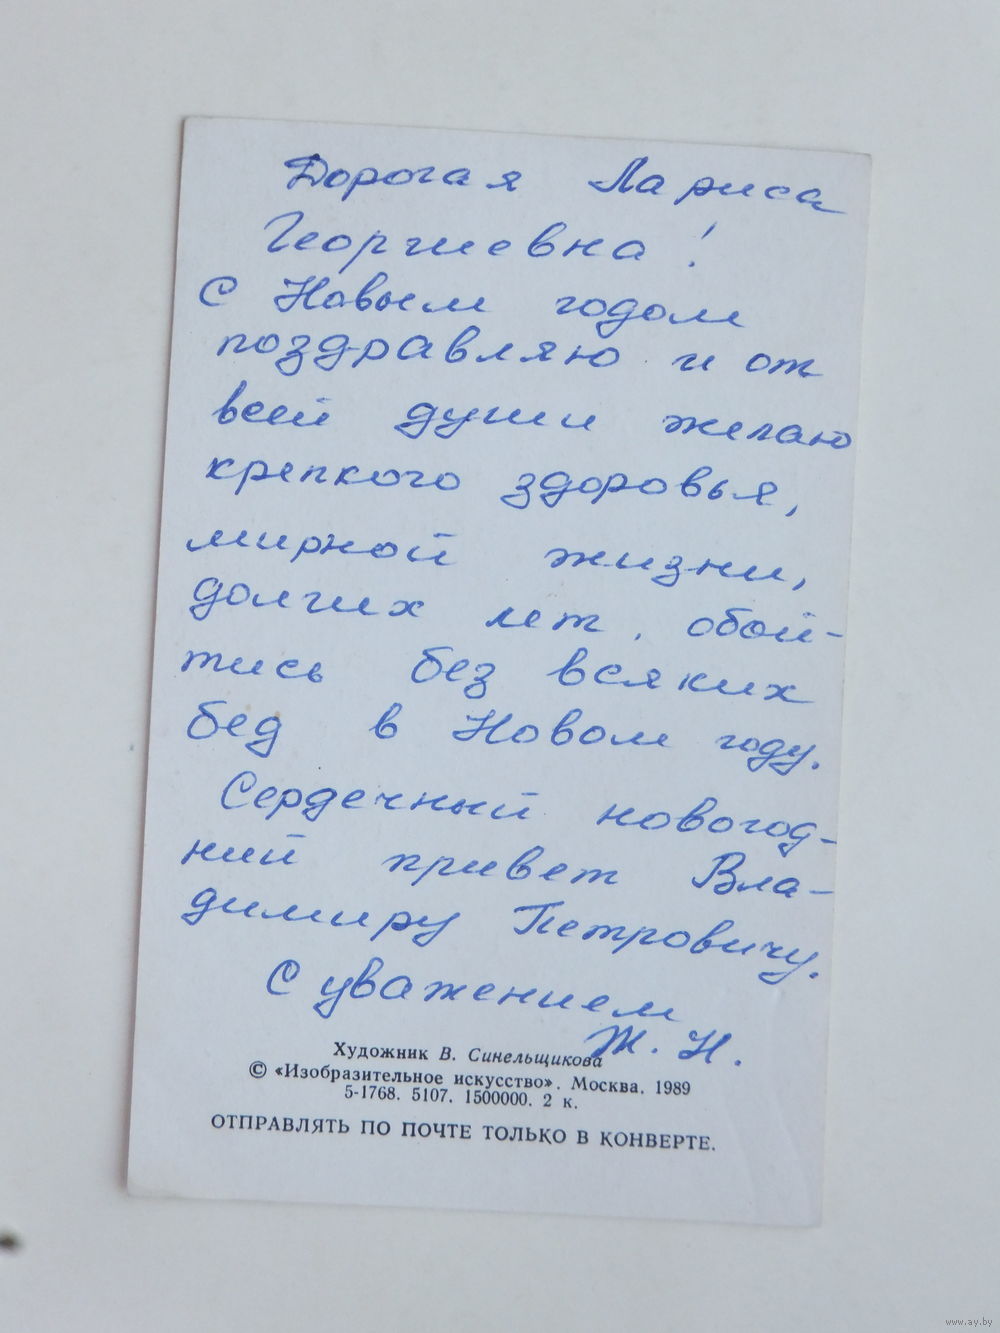 Дорогая Лариса
Георгиевна!
С Новым годом
поздравляю и от
всей души желаю
крепкого здоровья,
мирной жизни,
долгих лет, обой-
тись без всяких
бед в Новом году.
Сердечный новогод-
ний привет Вла-
димиру Петровичу.
С уважением
Ж. Н.
Художник В. Синельщикова
© «Изобразительное искусство». Москва. 1989
5-1768. 5107. 1500000. 2 к.
ОТПРАВЛЯТЬ ПО ПОЧТЕ ТОЛЬКО В КОНВЕРТЕ.
www.ay.by